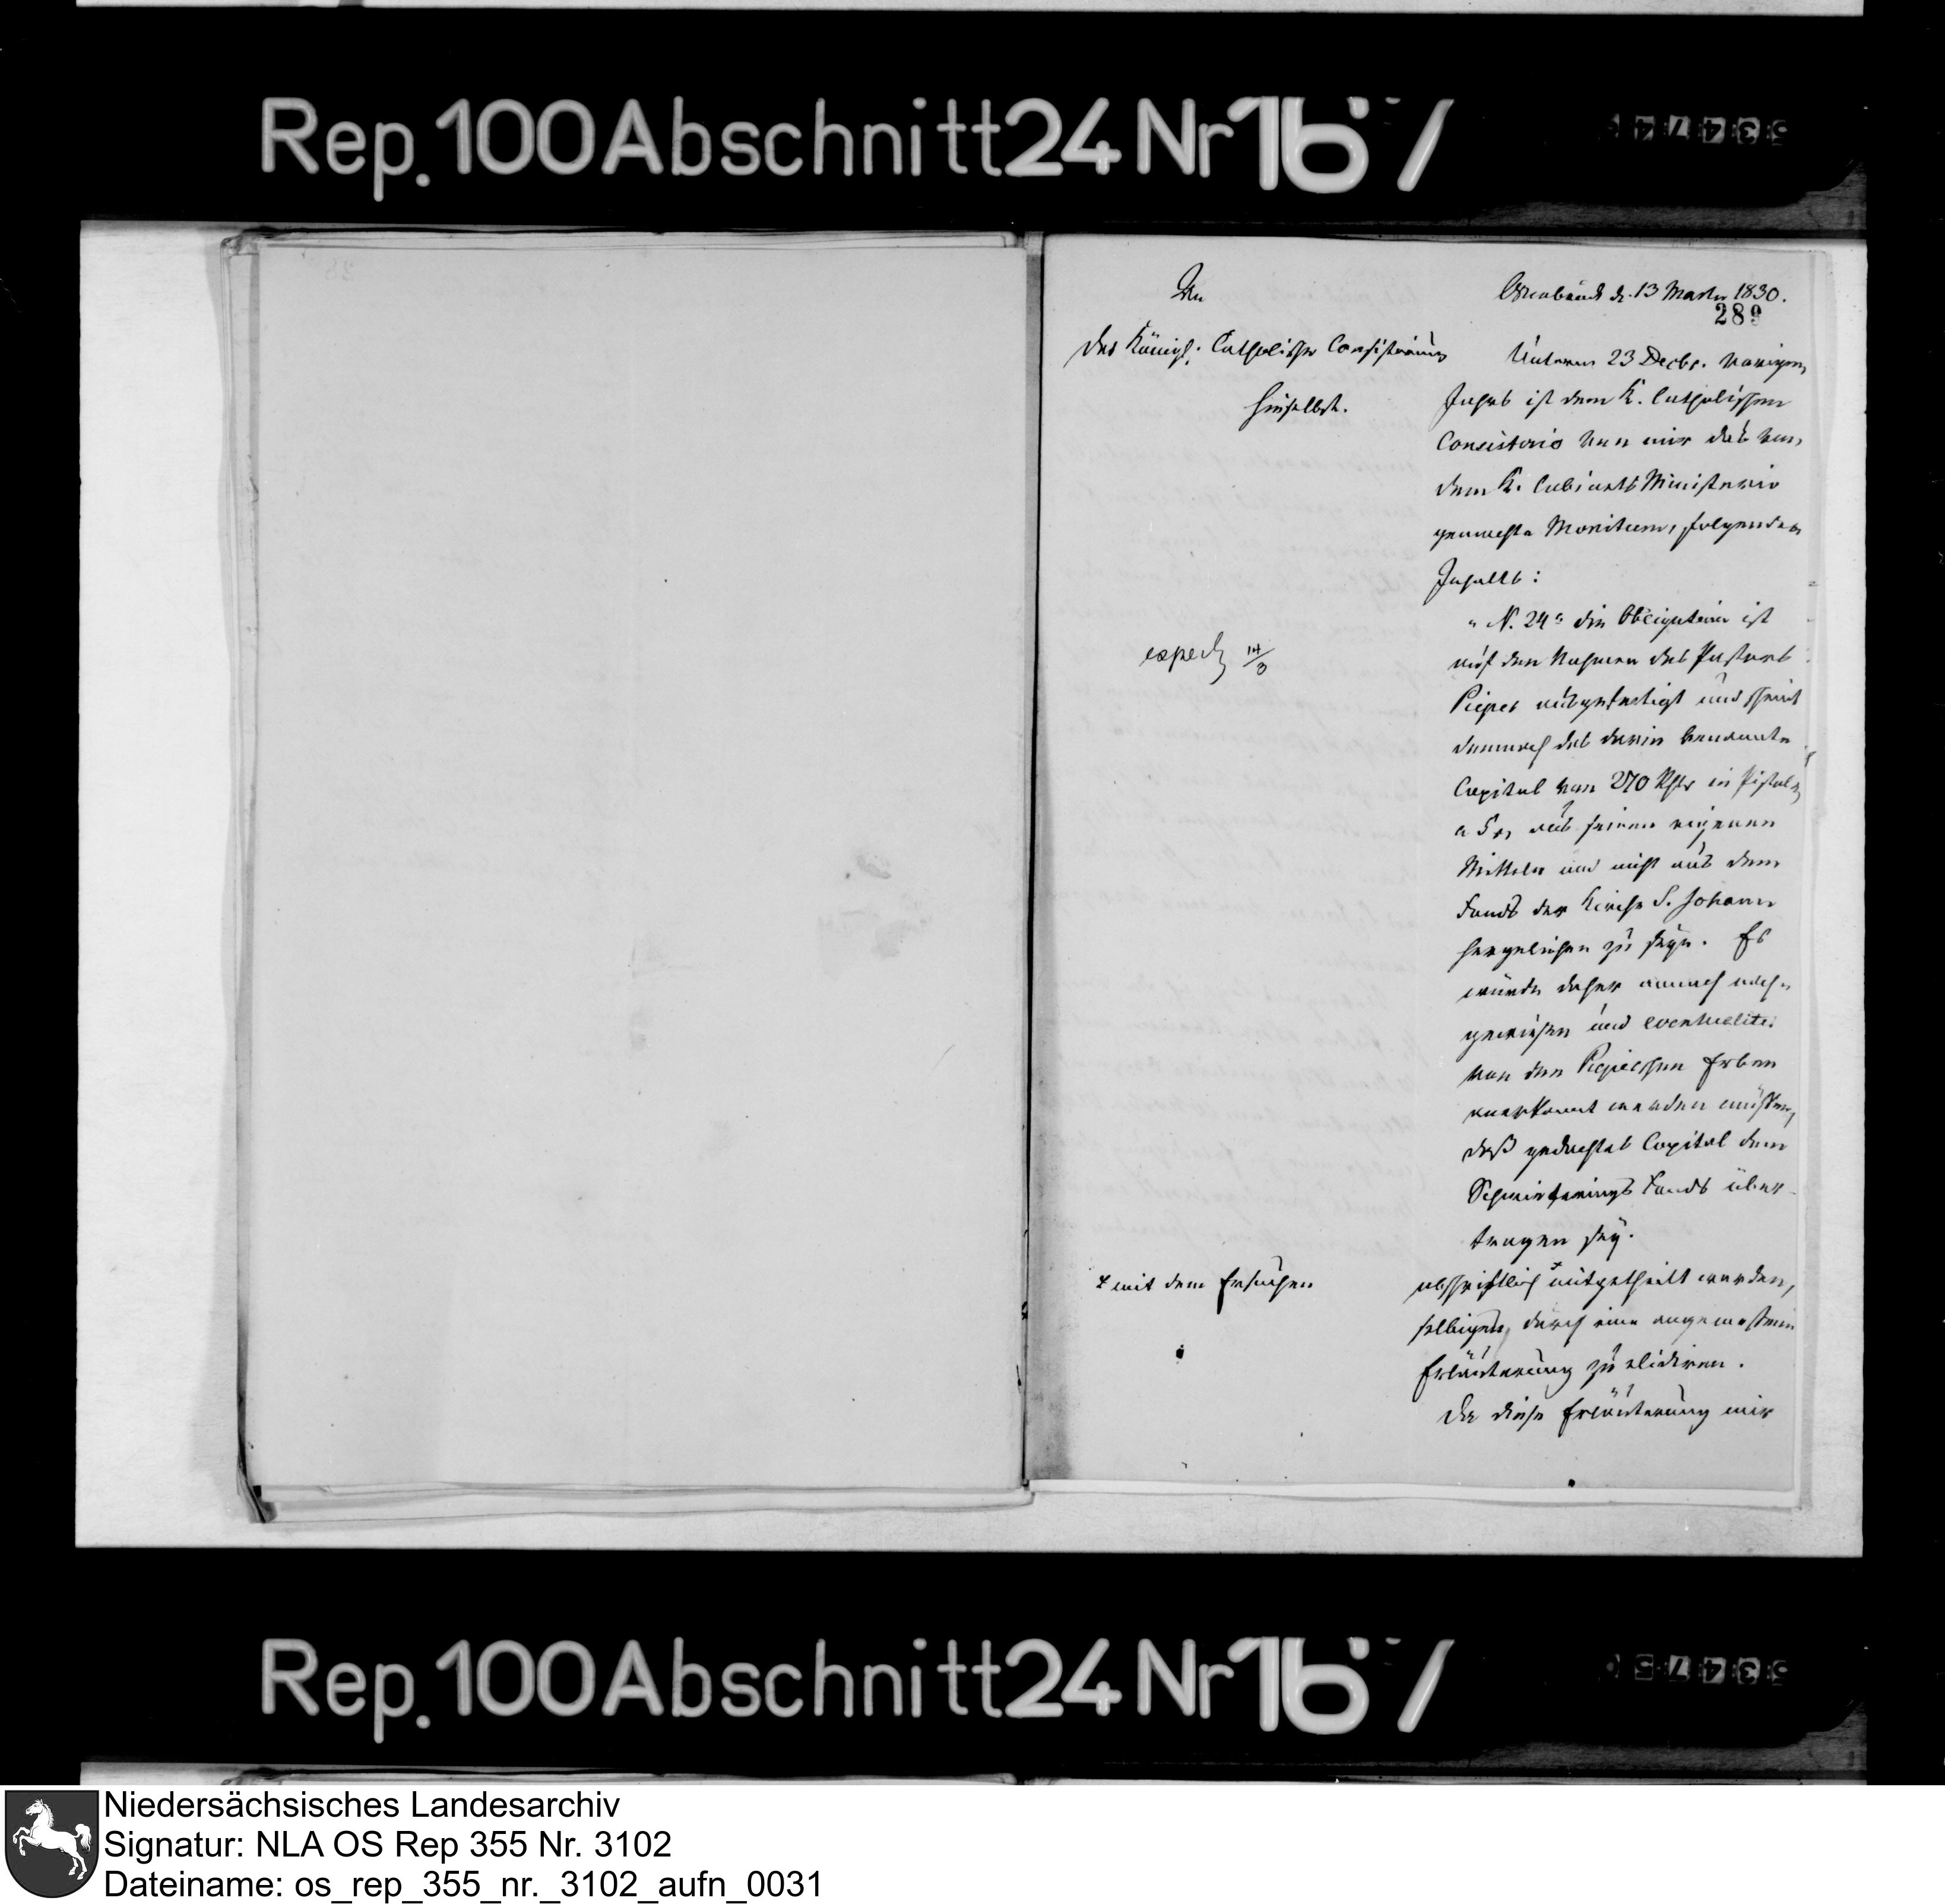 Rep. 100 Abschnitt 24 Nr 167
An
das Königl. Catholische Consistorium
hieselbst.
Osnabrück d. 13 Martz 1830.
289
Unterm 23 Decbr. vorigen
Jahrs ist dem K. Catholischen
Consistorio von mir das von
dem K. Cabinets Ministerio
gemachte Monitum, folgenden
Inhalts:
"N. 24a die Obligation ist
auf den Nahmen des Pastors
Pieper ausgefertigt und scheint
demnach das darin benannte
Capital von 270 Rthlr in Pistolen
a 5 r, aus seinen eigenen
Mitteln und nicht aus dem
Fonds der Kirche S. Johann
hergeliehen zu seyn. Es
würde daher annoch nach-
gewiesen und eventualiter
von den Pieperschen Erben
anerkannt werden müssen,
daß gedachtes Capital dem
Fonds über-
tragen sey.
abschriftlich + mitgetheilt worden,
selbiges, durch eine angemessene
Erläuterung zu elidiren.
Da diese Erläuterung mir
exped 14/3
+ mit dem Ersuchen
Rep. 100 Abschnitt 24 Nr 167
Niedersächsisches Landesarchiv
Signatur: NLA OS Rep 355 Nr. 3102
Dateiname: os_rep_355_nr._3102_aufn_0031